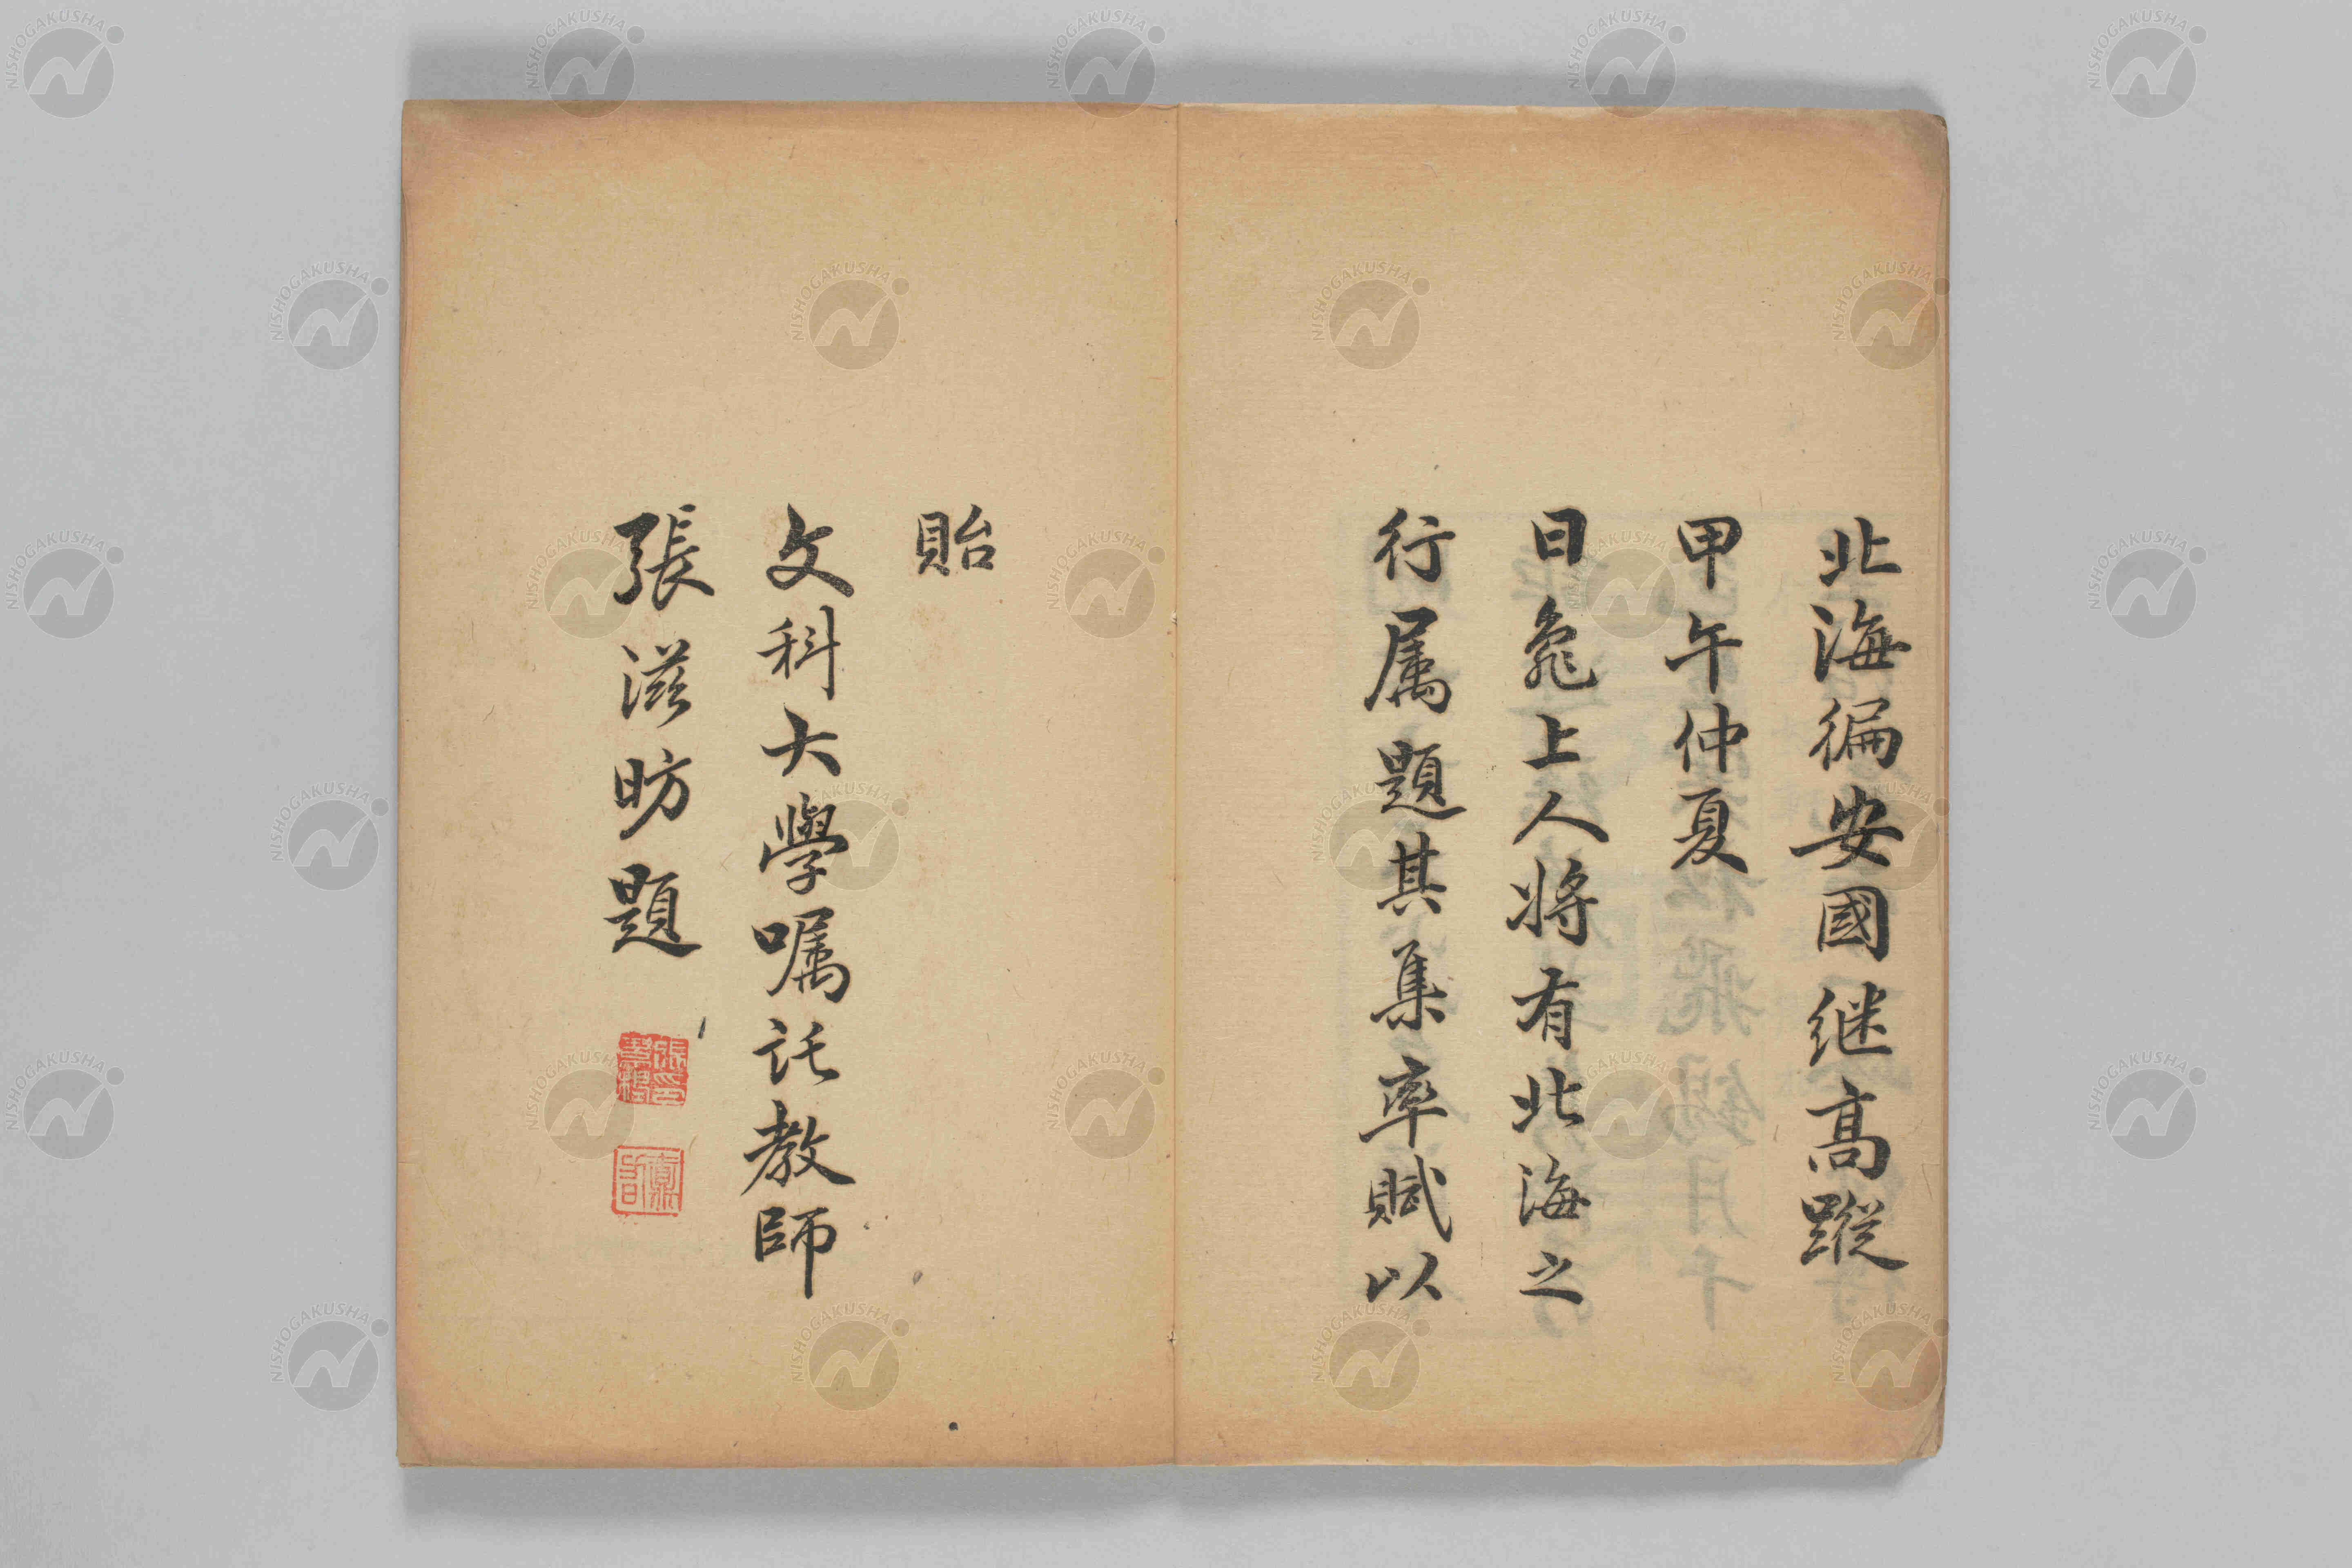 北海徧安國継髙蹤
甲午仲夏
日龕上人将有北海之
行属題其集率賦以
貽
文科大學嘱託教師
張滋昉題
NISHOGAKUSHA